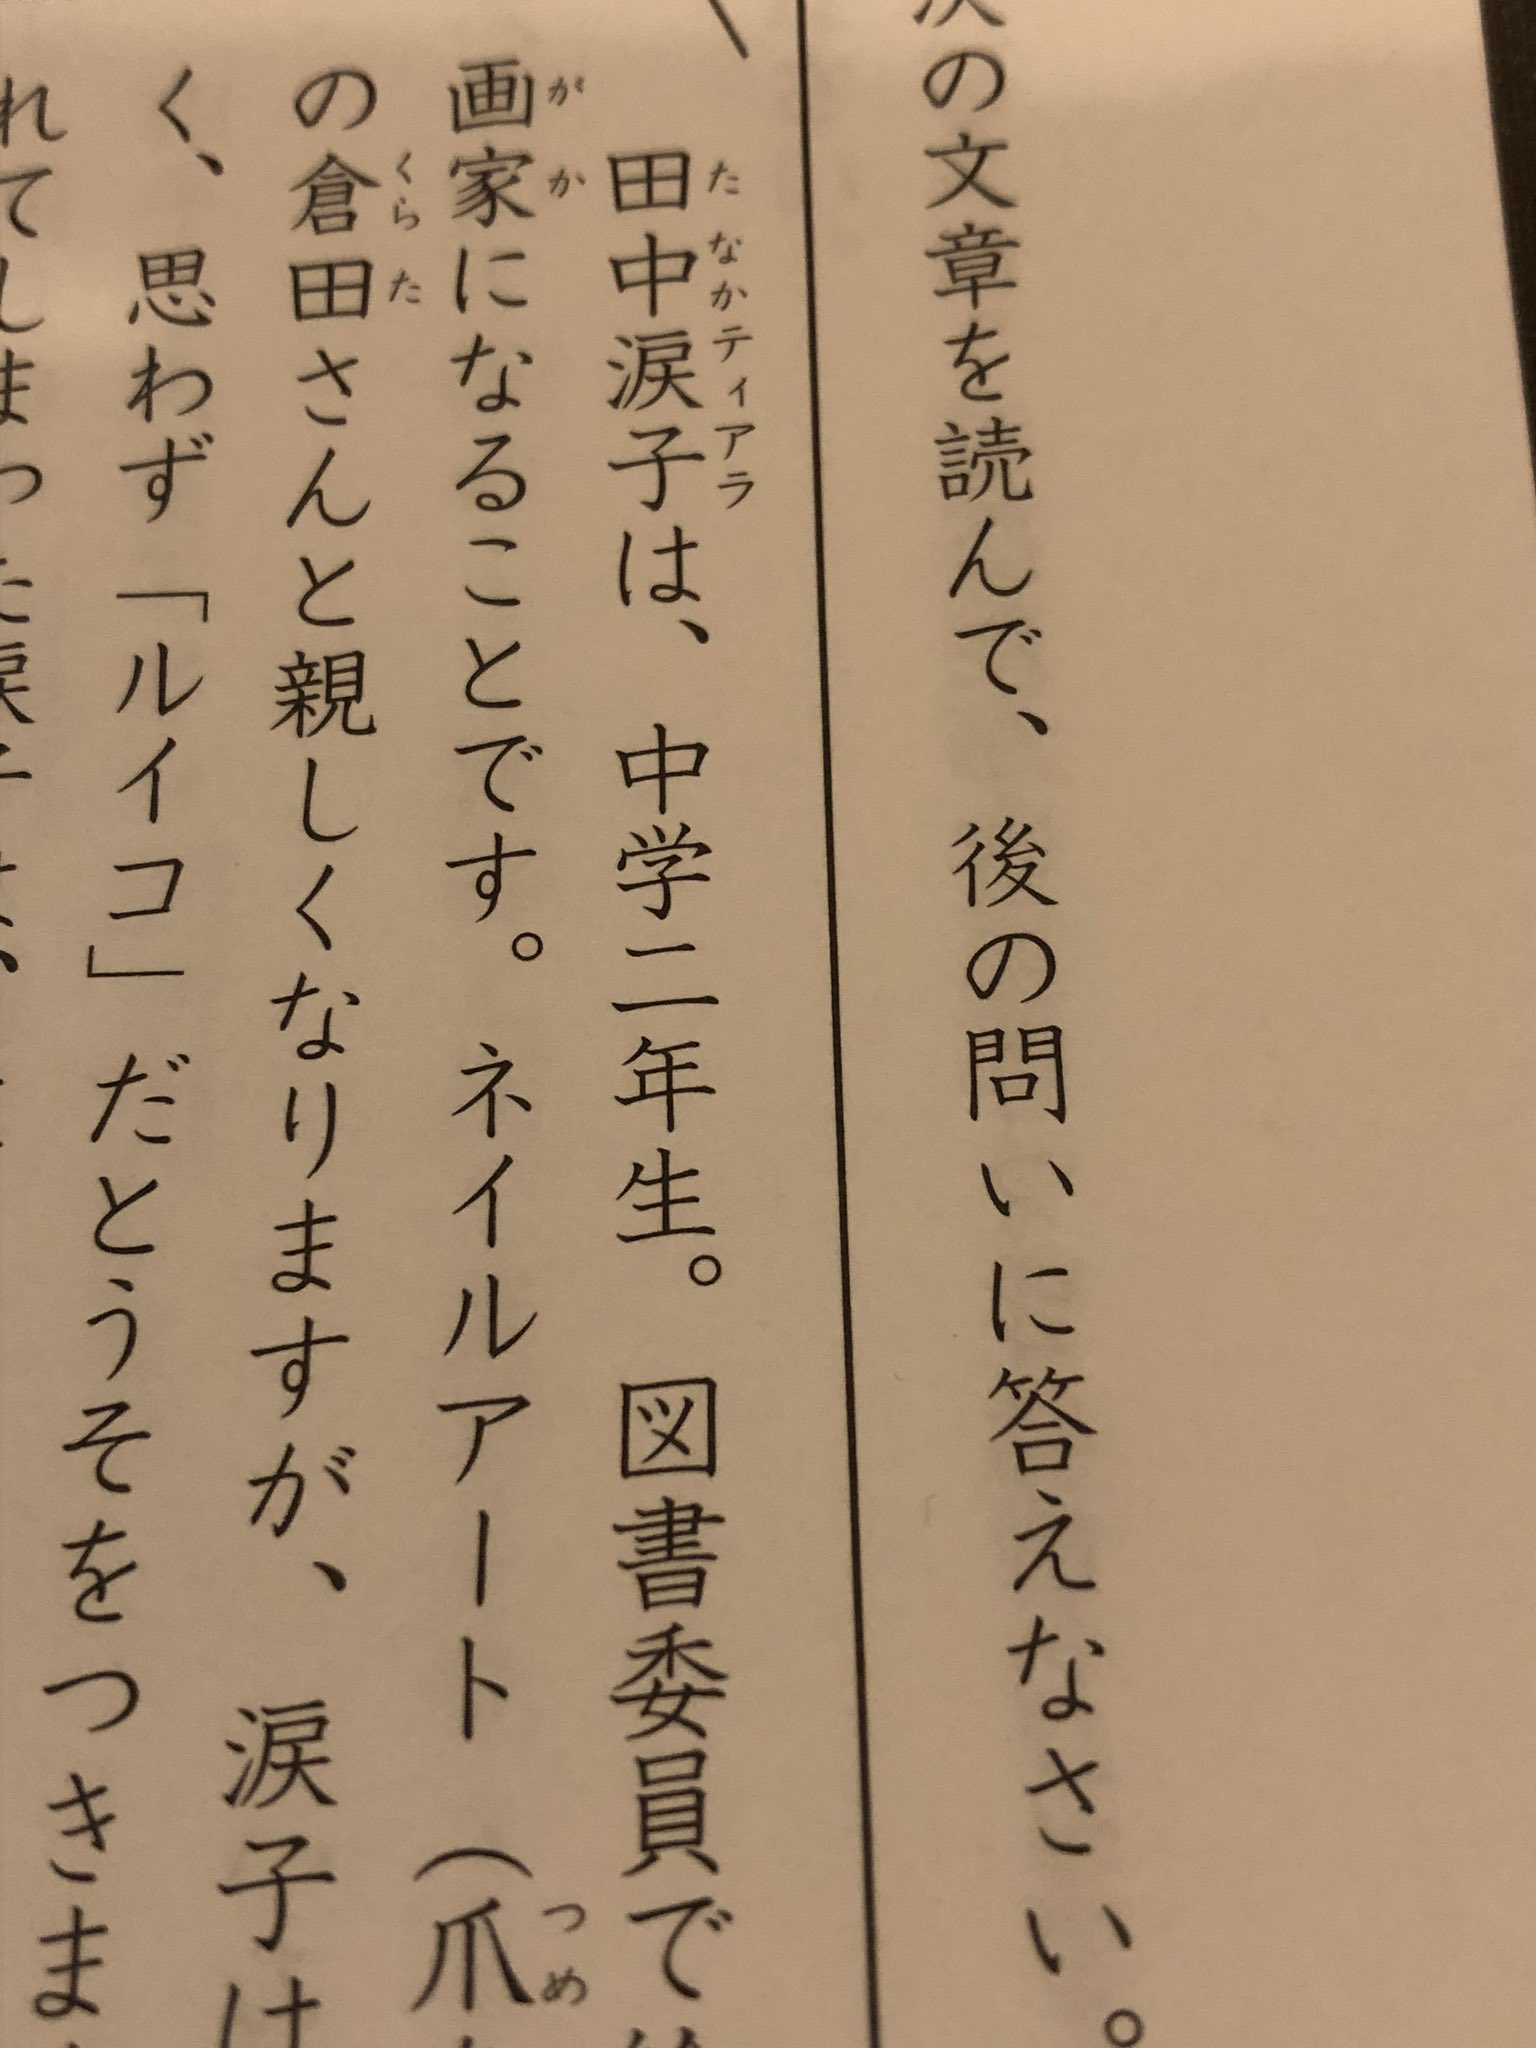 次の文章を読んで、後の問いに答えなさい。
田中涙子は、中学二年生。図書委員で
たなかティアラ
画家になることです。ネイルアート(爪
がか
つめ
の倉田さんと親しくなりますが、涙子は
くらた
く、思わず「ルイコ」だとうそをつきま
れてしまった涙子は、